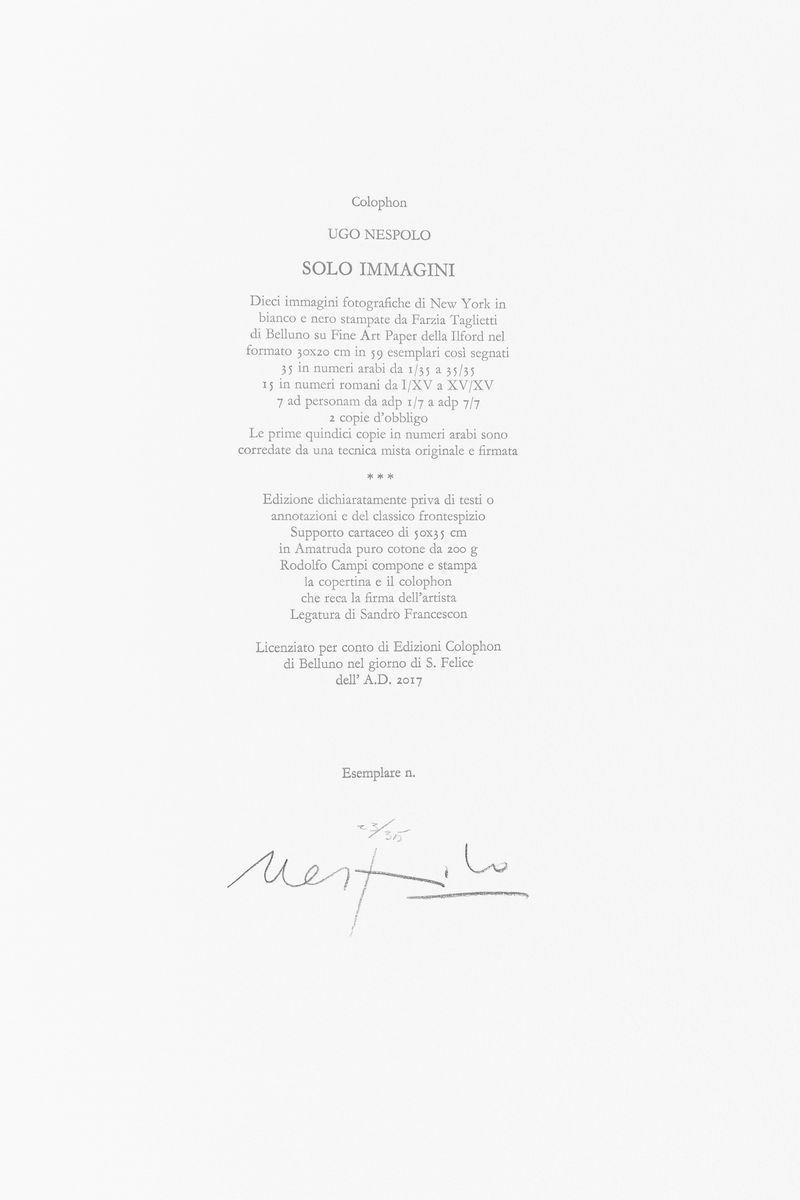 Colophon
UGO NESPOLO
SOLO IMMAGINI
Dieci immagini fotografiche di New York in
bianco e nero stampate da Farzia Taglietti
di Belluno su Fine Art Paper della Ilford nel
formato 30x20 cm in 59 esemplari così segnati
35 in numeri arabi da 1/35 a 35/35
15 in numeri romani da I/XV a XV/XV
7 ad personam da adp 1/7 a adp 7/7
2 copie d’obbligo
Le prime quindici copie in numeri arabi sono
corredate da una tecnica mista originale e firmata
***
Edizione dichiaratamente priva di testi o
annotazioni e del classico frontespizio
Supporto cartaceo di 50x35 cm
in Amatruda puro cotone da 200 g
Rodolfo Campi compone e stampa
la copertina e il colophon
che reca la firma dell’artista
Legatura di Sandro Francescon
Licenziato per conto di Edizioni Colophon
di Belluno nel giorno di S. Felice
dell’ A.D. 2017
Esemplare n.
23/35
Nespolo